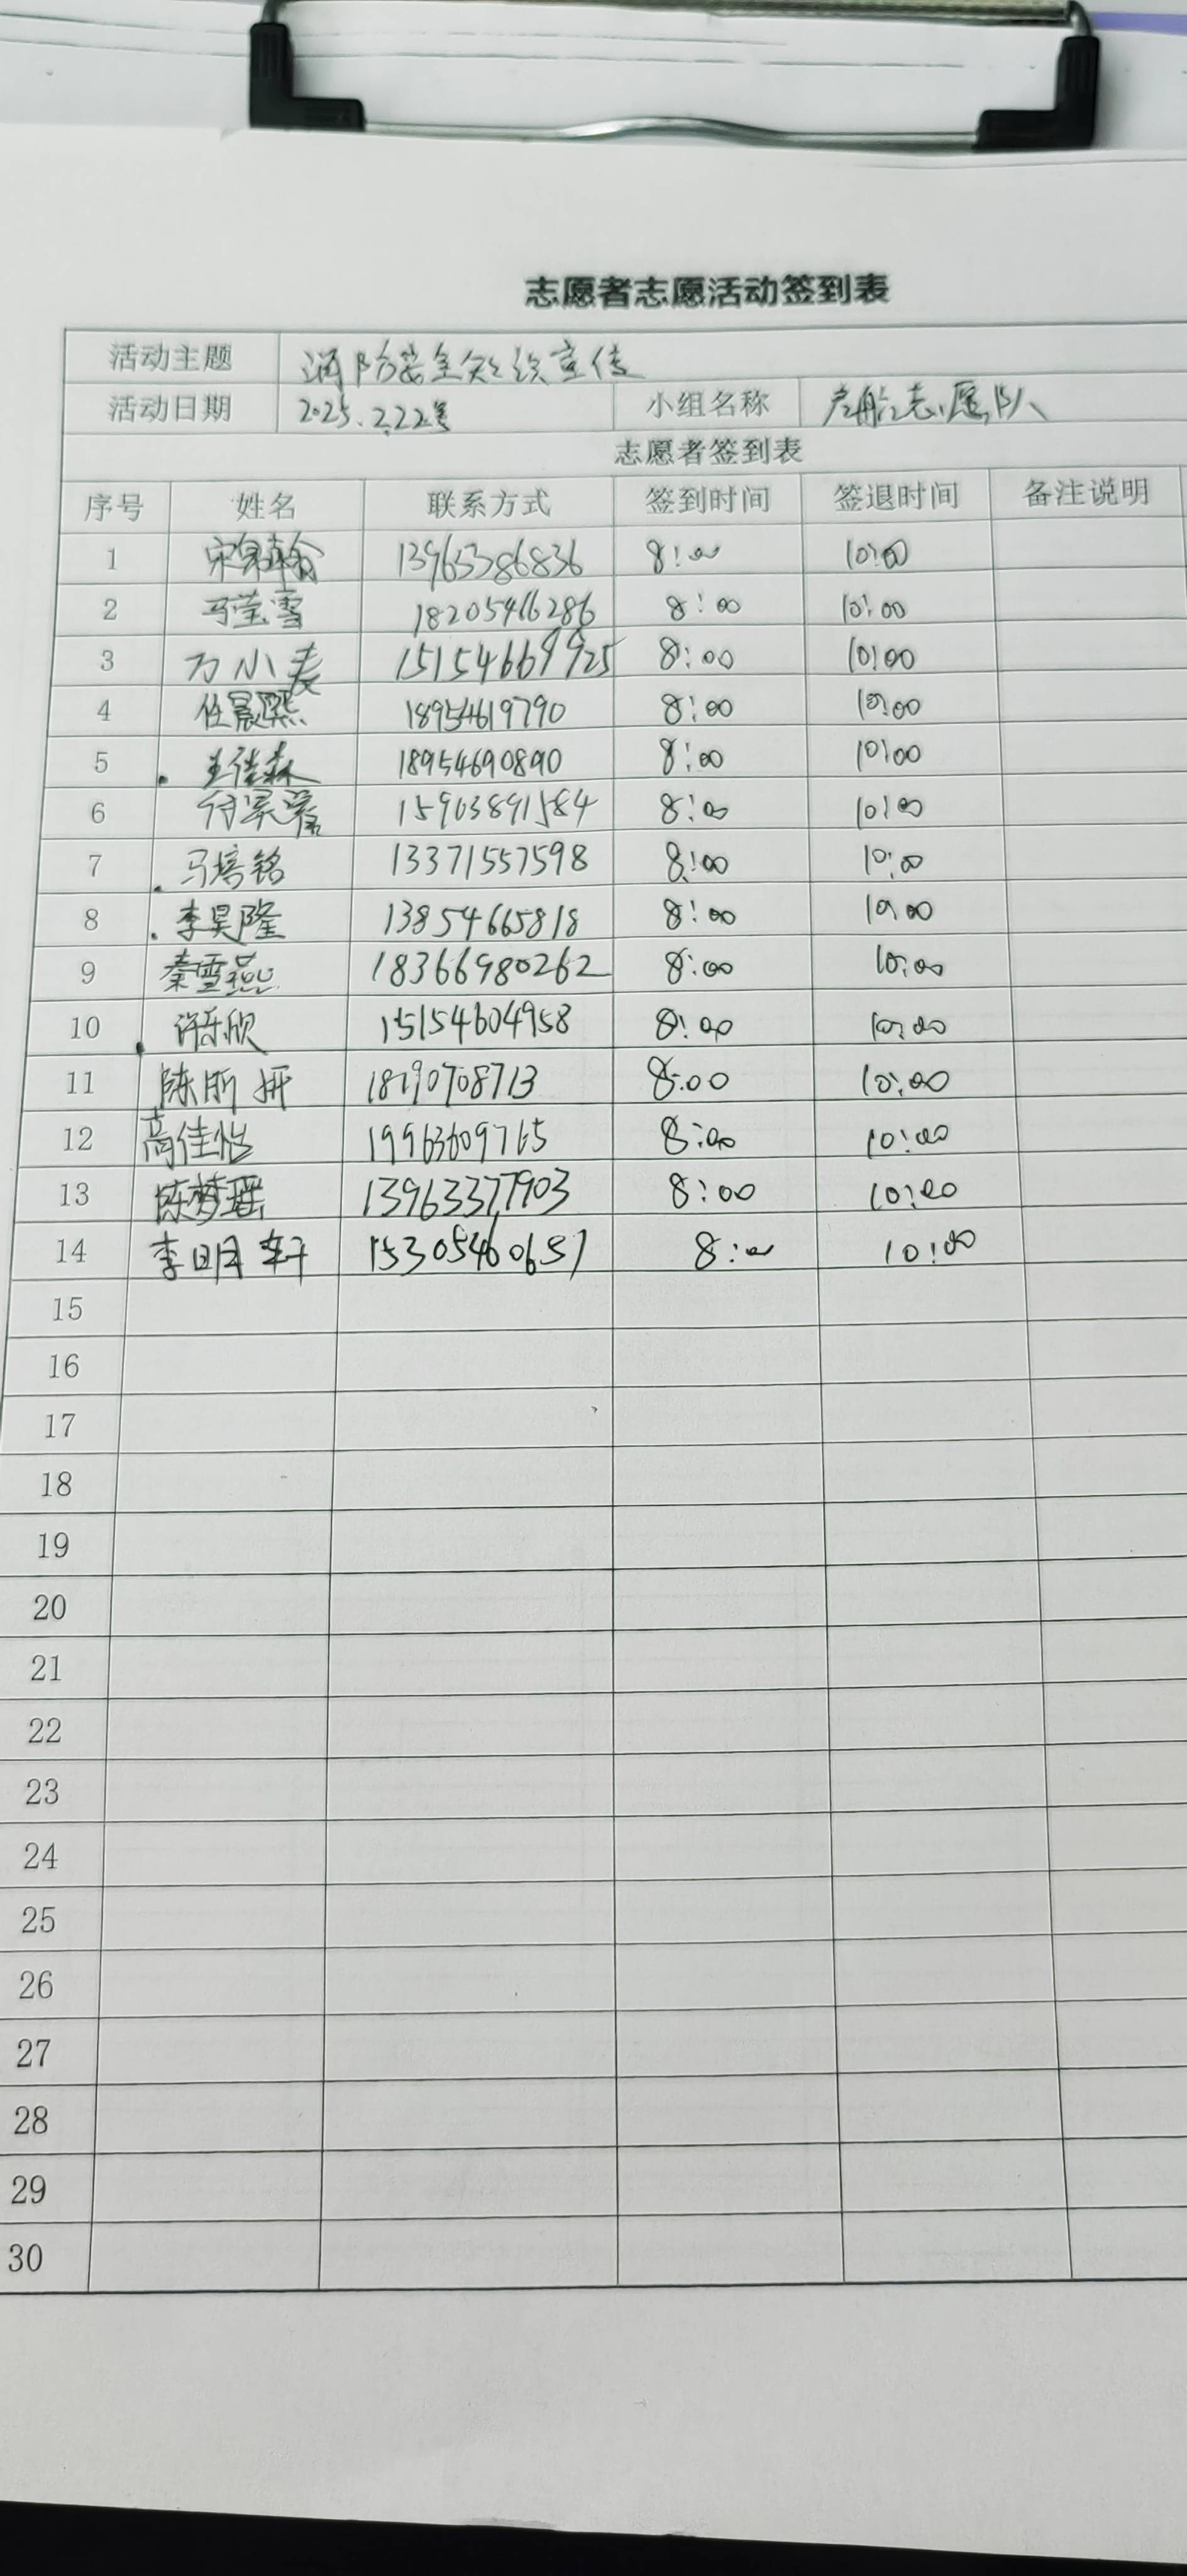 志愿者志愿活动签到表
活动主题 消防安全知识宣传
活动日期 2025.2.22号 小组名称 启航志愿队
志愿者签到表
序号 姓名 联系方式 签到时间 签退时间 备注说明
1 宋 13963386836 8:00 10:00
2 马莹雪 18205466286 8:00 10:00
3 万小麦 15154669925 8:00 10:00
4 任晨熙 18954619790 8:00 10:00
5 王佳森 18954690890 8:00 10:00
6 付 15963891584 8:00 10:00
7 马培铭 13371557598 8:00 10:00
8 李昊隆 13854665818 8:00 10:00
9 秦雪燕 18366980262 8:00 10:00
10 许乐欣 15154604958 8:00 10:00
11 陈昕妍 18190708713 8:00 10:00
12 高佳怡 19963609765 8:00 10:00
13 陈梦瑶 13963377903 8:00 10:00
14 李明轩 15305460651 8:00 10:00
15
16
17
18
19
20
21
22
23
24
25
26
27
28
29
30